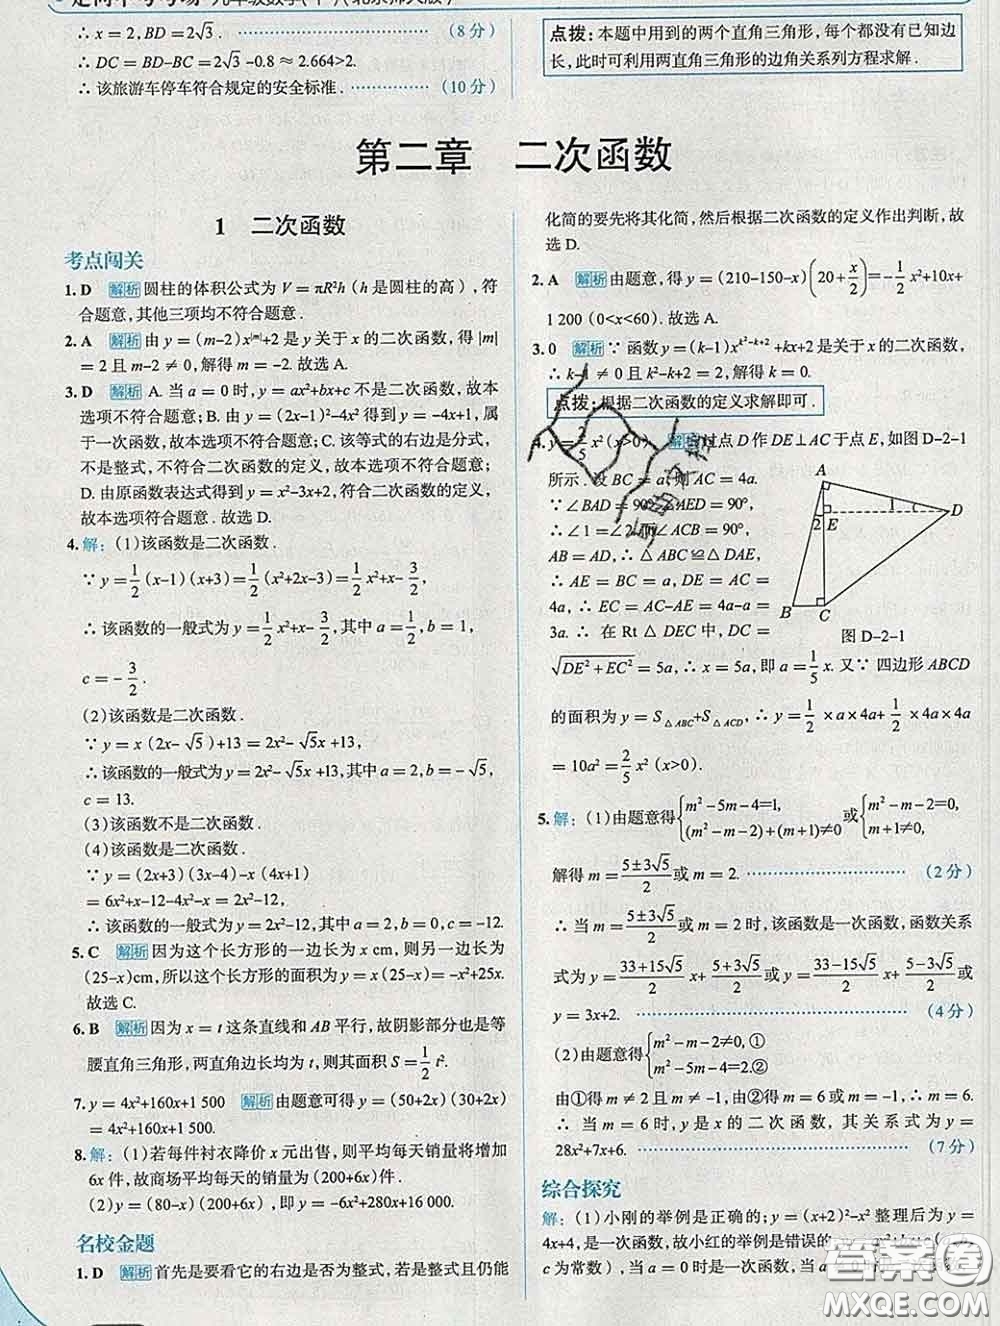 走向中考考场 九年级数学(下)(北京师大版)
∴ x = 2, BD = 2√3 . (8 分)
∴ DC = BD-BC = 2√3 -0.8 ≈ 2.664>2.
∴ 该旅游车停车符合规定的安全标准 . (10 分)
点拨:本题中用到的两个直角三角形,每个都没有已知边
长,此时可利用两直角三角形的边角关系列方程求解 .
第二章 二次函数
1 二次函数
考点闯关
1. D 解析 圆柱的体积公式为 V = πR²h ( h 是圆柱的高) , 符
合题意,其他三项均不符合题意 .
2. A 解析 由 y = (m-2)x^|m|+2 是 y 关于 x 的二次函数, 得 |m|
= 2 且 m-2 ≠ 0, 解得 m = -2. 故选 A.
3. D 解析 A. 当 a = 0 时, y = ax²+bx+c 不是二次函数, 故本
选项不符合题意; B. 由 y = (2x-1)²-4x² 得到 y = -4x+1, 属
于一次函数,故本选项不符合题意; C. 该等式的右边是分式,
不是整式, 不符合二次函数的定义, 故本选项不符合题意;
D. 由原函数表达式得到 y = x²-3x+2, 符合二次函数的定义,
故本选项符合题意. 故选 D.
4. 解: (1)该函数是二次函数 .
∵ y = 1/2 (x-1)(x+3) = 1/2 (x²+2x-3) = 1/2 x²+x- 3/2 ,
∴ 该函数的一般式为 y = 1/2 x²+x- 3/2 , 其中 a = 1/2 , b = 1,
c = - 3/2 .
(2)该函数是二次函数 .
∵ y = x (2x- √5 )+13 = 2x²- √5x +13,
∴ 该函数的一般式为 y = 2x²- √5x +13, 其中 a = 2, b = - √5 ,
c = 13.
(3)该函数不是二次函数 .
(4)该函数是二次函数 .
∵ y = (2x+3)(3x-4)-x (4x+1)
= 6x²+x-12-4x²-x = 2x²-12,
∴ 该函数的一般式为 y = 2x²-12, 其中 a = 2, b = 0, c = -12.
5. C 解析 因为这个长方形的一边长为 x cm, 则另一边长为
(25-x)cm, 所以这个长方形的面积为 x (25-x) = -x²+25x.
故选 C.
6. B 解析 因为 x = t 这条直线和 AB 平行, 故阴影部分也是等
腰直角三角形, 两直角边长均为 t, 则其面积 S = 1/2 t².
7. y = 4x²+160x+1 500 解析 由题意可得 y = (50+2x)(30+2x)
= 4x²+160x+1 500.
8. 解: (1)若每件衬衣降价 x 元出售, 则平均每天销量将增加
6x 件, 故商场平均每天的销量为 (200+6x) 件.
(2) y = (80-x)(200+6x) , 即 y = -6x²+280x+16 000.
名校金题
1. D 解析 首先是要看它的右边是否为整式, 若是整式且仍能
化简的要先将其化简, 然后根据二次函数的定义作出判断, 故
选 D.
2. A 解析 由题意, 得 y = (210-150-x)(20+ x/2) = - 1/2 x²+10x+
1 200 (0<x<60). 故选 A.
3. 0 解析 ∵ 函数 y = (k-1)x^(k²-k+2) +kx+2 是关于 x 的二次函数,
∴ k-1 ≠ 0 且 k²-k+2 = 2, 解得 k = 0.
点拨: 根据二次函数的定义求解即可 .
4. y = 2/5 x² (x>0) 解析 过点 D 作 DE⊥AC 于点 E, 如图 D-2-1
所示 . 设 BC = a, 则 AC = 4a.
∵ ∠BAD = 90°, ∠AED = 90°,
∴ ∠1 = ∠2. 则 ∠ACB = 90°,
AB = AD, ∴ △ABC ≌ △DAE,
∴ AE = BC = a, DE = AC =
4a, ∴ EC = AC-AE = 4a-a =
3a. ∴ 在 Rt △DEC 中, DC =
√(DE²+EC²) = 5a, ∴ x = 5a, 即 a = 1/5 x. 又∵ 四边形 ABCD
的面积为 y = S△ABC+S△ACD, ∴ y = 1/2 ×a×4a+ 1/2 ×4a×4a
= 10a² = 2/5 x² (x>0).
A
1
2
E
D
B
C
图 D-2-1
5. 解: (1)由题意得 {m²-5m-4=1, (m²-m-2)+(m+1)≠0 或 {m²-m-2=0, m+1≠0,
解得 m = (5±3√5)/2 或 m = 2. (2 分)
∴ 当 m = (5±3√5)/2 或 m = 2 时, 该函数是一次函数, 函数关系
式为 y = (33+15√5)/2 x+ (5+3√5)/2 或 y = (33-15√5)/2 x+ (5-3√5)/2 或
y = 3x+2. (4 分)
(2)由题意得 {m²-m-2≠0, ① m²-5m-4=2. ②
由①得 m ≠ 2 且 m ≠ -1, 由②得 m = 6 或 m = -1, ∴ m = 6.
∴ 当 m = 6 时, y 是 x 的二次函数, 其关系式为 y =
28x²+7x+6. (7 分)
综合探究
解: (1)小刚的举例是正确的; y = (x+2)²-x² 整理后为 y =
4x+4, 是一次函数, 故小红的举例是错误的
c 为常数) , 当 a = 0 时是一次函数, 当 a
答案圈
MXQE.COM